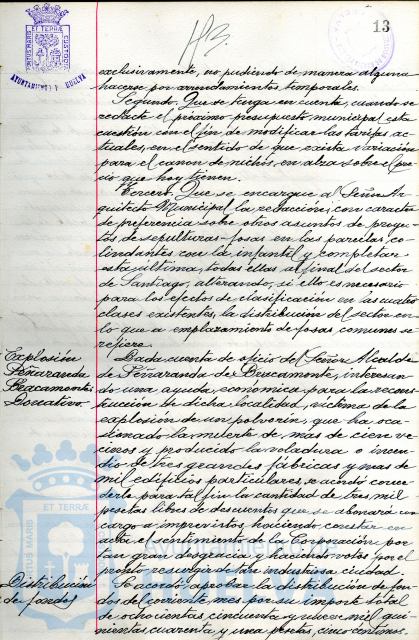 PORTUS MARIS ET TERRÆ CUSTODIA
AYUNTAMIENTO HUELVA
13
exclusivamente, no pudiendo de manera alguna
hacerse por arrendamientos temporales.
Segundo. Que se tenga en cuenta, cuando se
redacte el próximo presupuesto municipal esta
cuestión con el fin de modificar las tarifas ac-
tuales, en el sentido de que exista variación
para el canon de nichos, en alza sobre el pre-
cio que hoy tienen.
Tercero. Que se encargue al Señor Ar-
quitecto Municipal la redacción, con carácter
de preferencia sobre otros asuntos de proyec-
tos de sepulturas-fosas en las parcelas co-
lindantes con la infantil y completar
esta última, todas ellas al final del sector
de Santiago, alterando, si ello es necesario
para los efectos de clasificación en las cuatro
clases existentes, la distribución del sector en
lo que a emplazamiento de fosas comunes se
refiere.
Explosión
Peñaranda
Bracamonte.
Donativo.
Dada cuenta de oficio del Señor Alcalde
de Peñaranda de Bracamonte, interesan-
do una ayuda económica para la recons-
trucción de dicha localidad, víctima de la
explosión de un polvorín, que ha oca-
sionado la muerte de mas de cien ve-
cinos y producido la voladura o incen-
dio de tres grandes fábricas y mas de
mil edificios particulares, se acordó conce-
derle para tal fin la cantidad de tres mil
pesetas libres de descuentos que se abonará con
cargo a imprevistos, haciendo constar en
acta el sentimiento de la Corporación por
tan gran desgracia y haciendo votos por el
pronto resurgir de tan industriosa ciudad.
Distribución
de fondos
Se acordó aprobar la distribución de fon-
dos del corriente mes por su importe total
de ochocientas cincuenta y nueve mil qui-
nientas cuarenta y una pesetas cinco céntimos